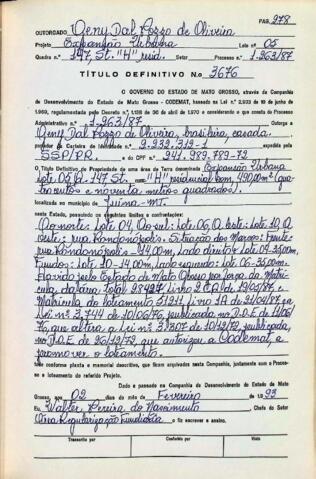 PAG. 278
OUTORGADO: Geny Dal Pozzo de Oliveira
Projeto Expansão Urbana Lote nº 05
Quadra nº 147, St. "H" resid. Processo nº 1.263/87
TÍTULO DEFINITIVO N.o 3676
O GOVERNO DO ESTADO DE MATO GROSSO, através da Companhia
de Desenvolvimento do Estado de Mato Grosso - CODEMAT, baseado na Lei n.º 2.933 de 19 de junho
de 1.969, regulamentada pelo Decreto n.º 1.138 de 30 de abril de 1970 e considerando o que consta do Processo
Administrativo n.º 1.263/87 Outorga a
Geny Dal Pozzo de Oliveira, brasileira, casada.
portador da Carteira de Identidade n.º 2.232.319-1 expedida pela
SSP/PR. e do CPF n.º 241.989.789-72
O Título Definitivo de Propriedade da Área de Terra denominada Expansão Urbana
Lote 05, Q. 147, St. "H" residencial com 490,00m² (qua
trocentos e noventa metros quadrados).
localizada no município de Juína-MT.
neste Estado, possuindo os seguintes limites e confrontações:
Ao norte: Lote 04, Ao sul: Lote 06, A leste: Lote 10, A
oeste: rua Rondonópolis. Situação dos Marcos: Frente:
rua Rondonópolis - 14,00m, Lado direito: Lote 04-35,00m,
Fundo: Lote 10 - 14,00m, Lado esquerdo: Lote 06-35,00m.
Havido pelo Estado de Mato Grosso por força da Matrí-
cula
Matrícula do loteamento
Lei nº 3.744 de 10/06/76, publicada no D.O.E de
76, que altera a Lei nº 3.307 de 10/12/72, publicada,
no D.O.E de 26/12/72, que autorizou a Codemat, a
promover o loteamento.
tudo conforme planta e memorial descritivo, que ficam arquivados nesta Companhia, juntamente com o Proces-
so e loteamento do referido Projeto.
Dado e passado na Companhia de Desenvolvimento do Estado de Mato
Grosso, aos 02 dias do mês de Fevereiro de 1.993
Eu, Walter Pereira do Nascimento Chefe do Setor
Regularização Fundiária o fiz escrever e assino.
Transcrito por Conferido por Visto